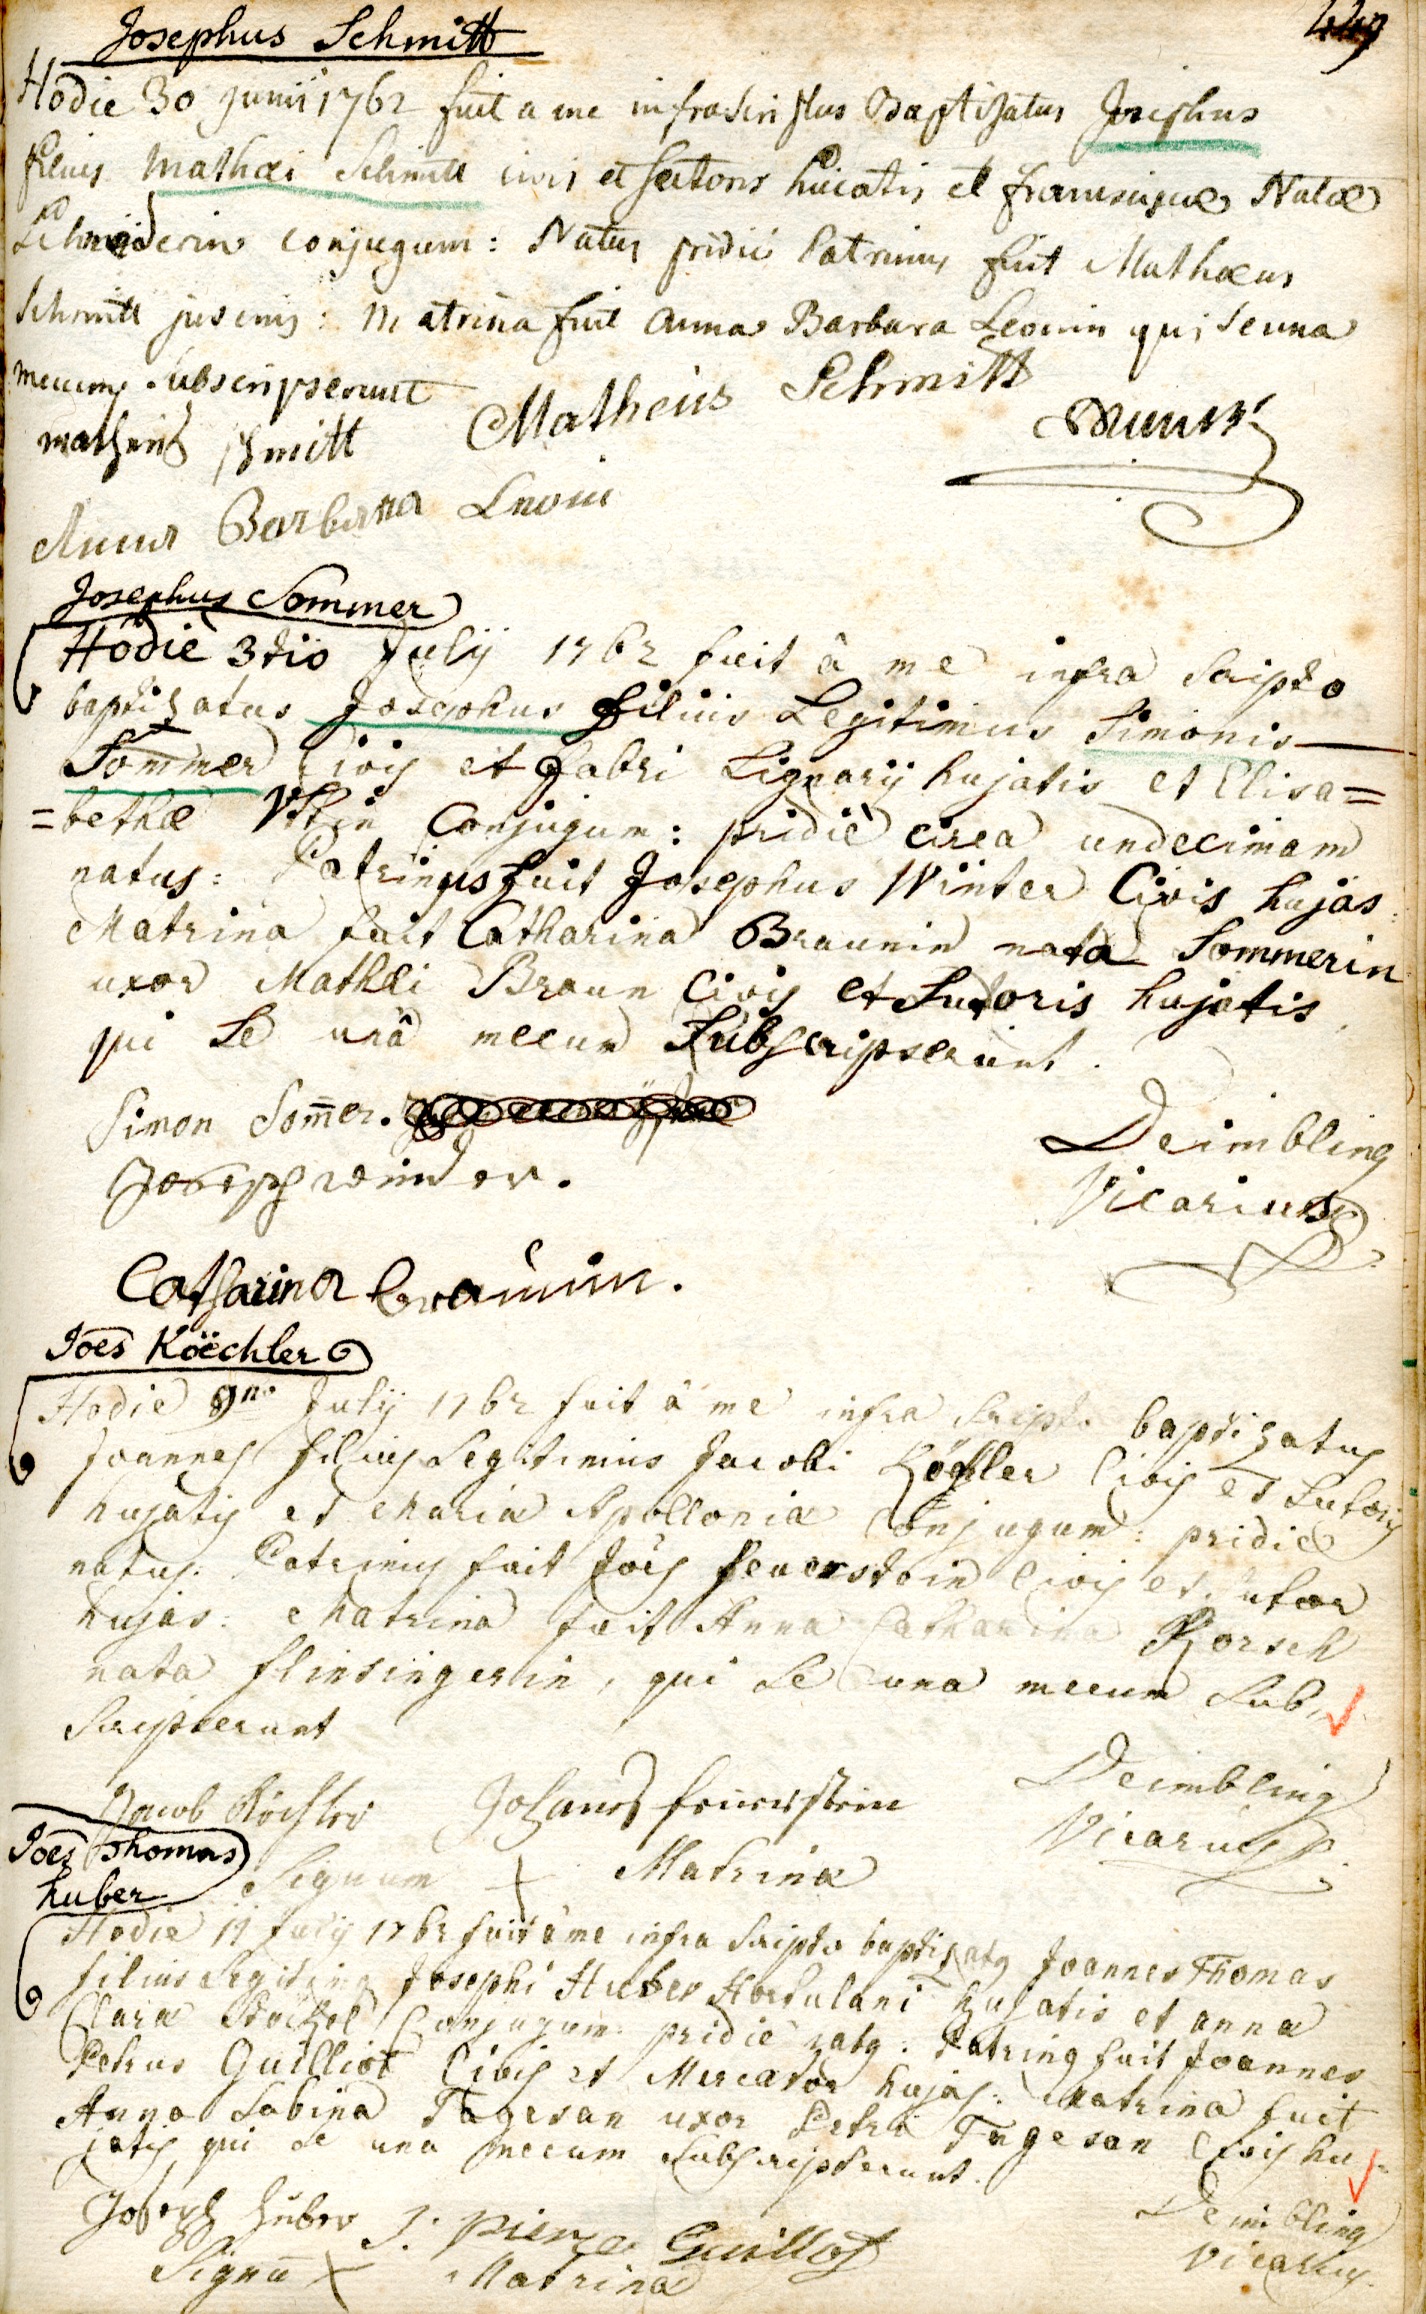 449
Josephus Schmitt
Hodie 30 Junii 1762 fuit a me infrascriptus Baptisatus Josephus
filius Mathæi Schmitt civis et sartoris huiatis et Franciscæ Natæ
Schneiderin conjugum: Natus pridie Patrinus fuit Mathæus
Schmitt juvenis: Matrina fuit Anna Barbara Leonin qui se una
mecum subscripserunt
Matheus Schmitt Matheius Schmitt
Anna Barbara
Josephus Sommer
Hodie 3tio Julÿ 1762 fuit â me infra Scripto
baptizatus Josephus filius Legitimus Simonis
Sommer Civis et Fabri Lignarÿ hujatis et Elisa=
=bethæ Conjugum: pridiè circa undecimam
natus: Patrinus fuit Josephus Winter Civis hujas:
Matrina fuit Catharina Braunin nata Sommerin
uxor Mathæi Braun Civis et Sutoris hujatis,
qui Se unâ mecum Subscripserunt.
Simon Som̄er.
Joseph winder.
Deimbling
Vicarius
Catharina braunin.
Joes Köechler
Hodie 9no Julÿ 1762 fuit â me infra Scripto baptizatus
Joannes filius Legitimus Jacobi Köchler Civis et Sutoris
hujatis et Mariæ Apolloniæ Conjugum: pridie
natus. Patrinus fuit Joës Feuerstein Civis et Sutor
hujas: Matrina fuit Anna Catharina Korsch
nata Flinsingerin, qui Se una mecum Sub,
Scripserunt
Jacob Köchler Johannes feuerstein
Deimbling
Vicarius
Signum + Matrinæ
Joes Thomas
huber
Hodie 11 Julÿ 1762 fuit â me infra Scripto baptizatg Joannes Thomas
filius Legitimg Josephi Huber Hortulani hujatis et anna
Clara Conjugum pridie natg. Patring fuit Joannes
Petrus Guilliot Civis et Mercator hujas: Matrina fuit
Anna Sabina Tagesan uxor Petri Tagesan Civis hu-
jatis, qui Se una mecum Subscripserunt.
Joseph huber J. Pierre Guilliot
Deimbling
Vicarius.
Signū + Matrinæ